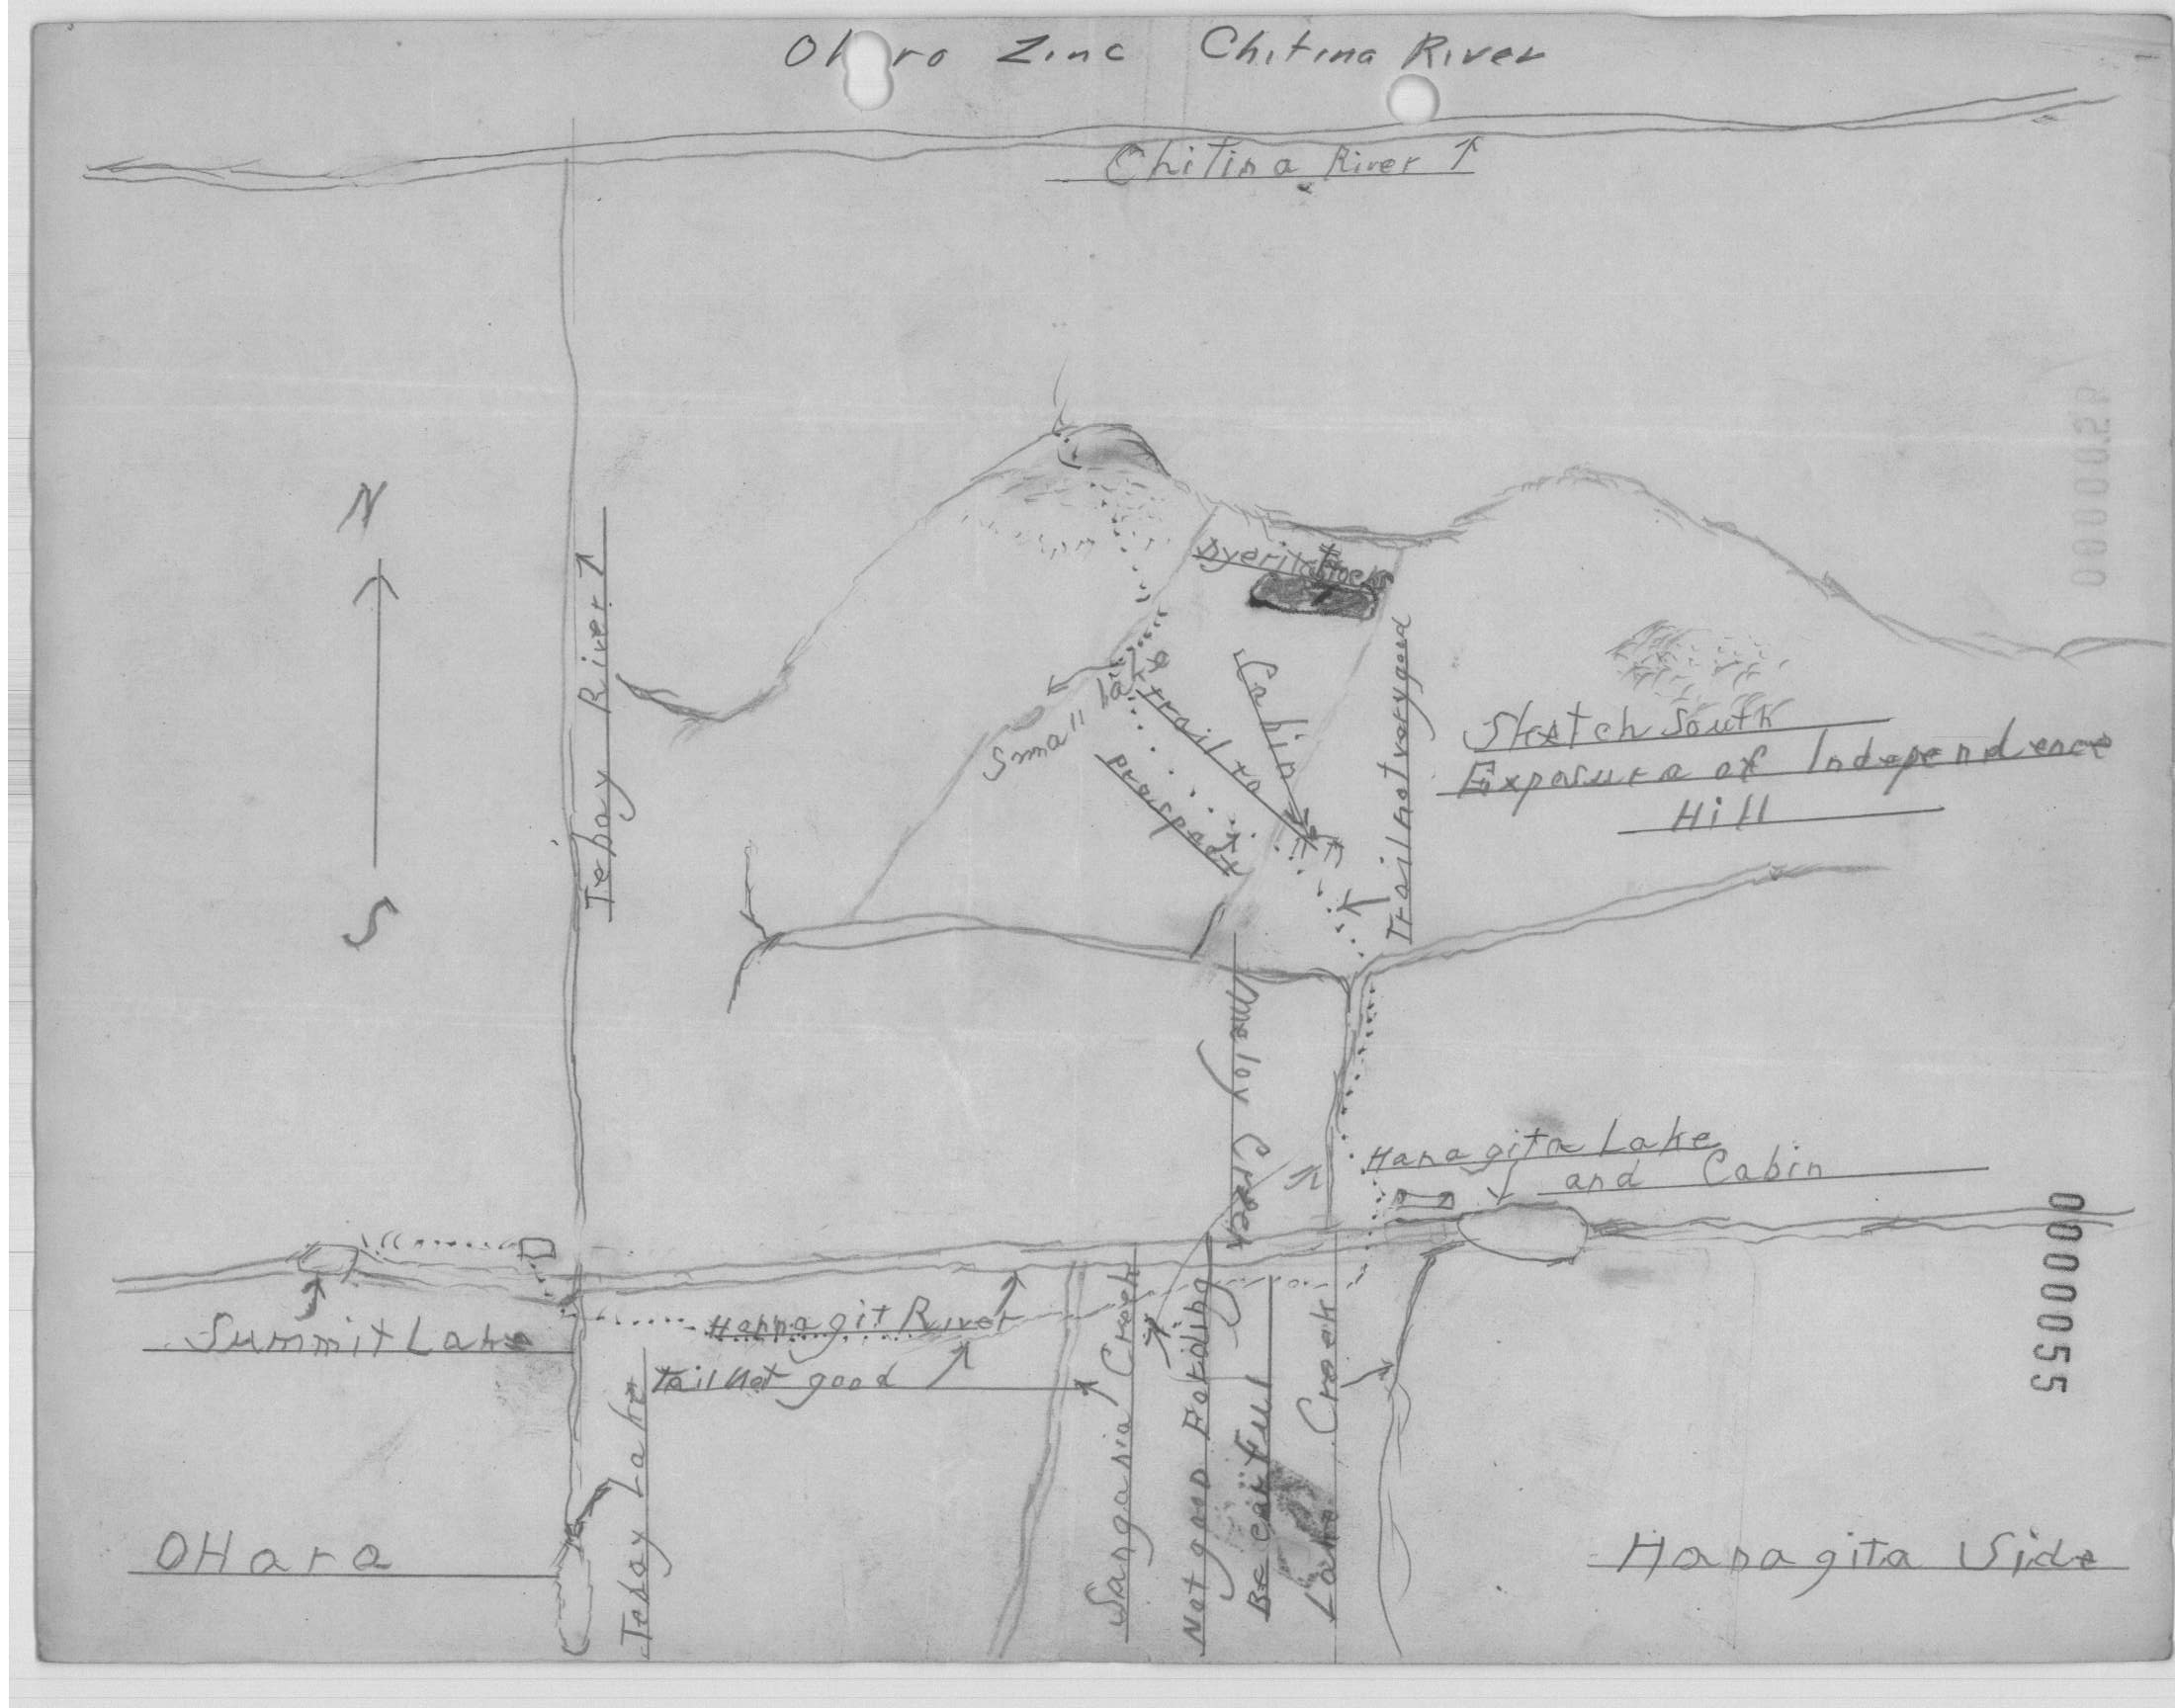 Oh ro Zinc Chitina River
Chitina River
N
S
Tebay River
Rocks
Small Lake
trail to
prospect
Cabin
Trail not very good
Sketch South
Exposure of Independence
Hill
Maloy Creek
Hanagita Lake
and Cabin
Summit Lake
Hannagit River
trail Not good
Tebay Lake
Creek
Not good Fording
Be carful
Creek
OHara
Hanagita Side
0000055